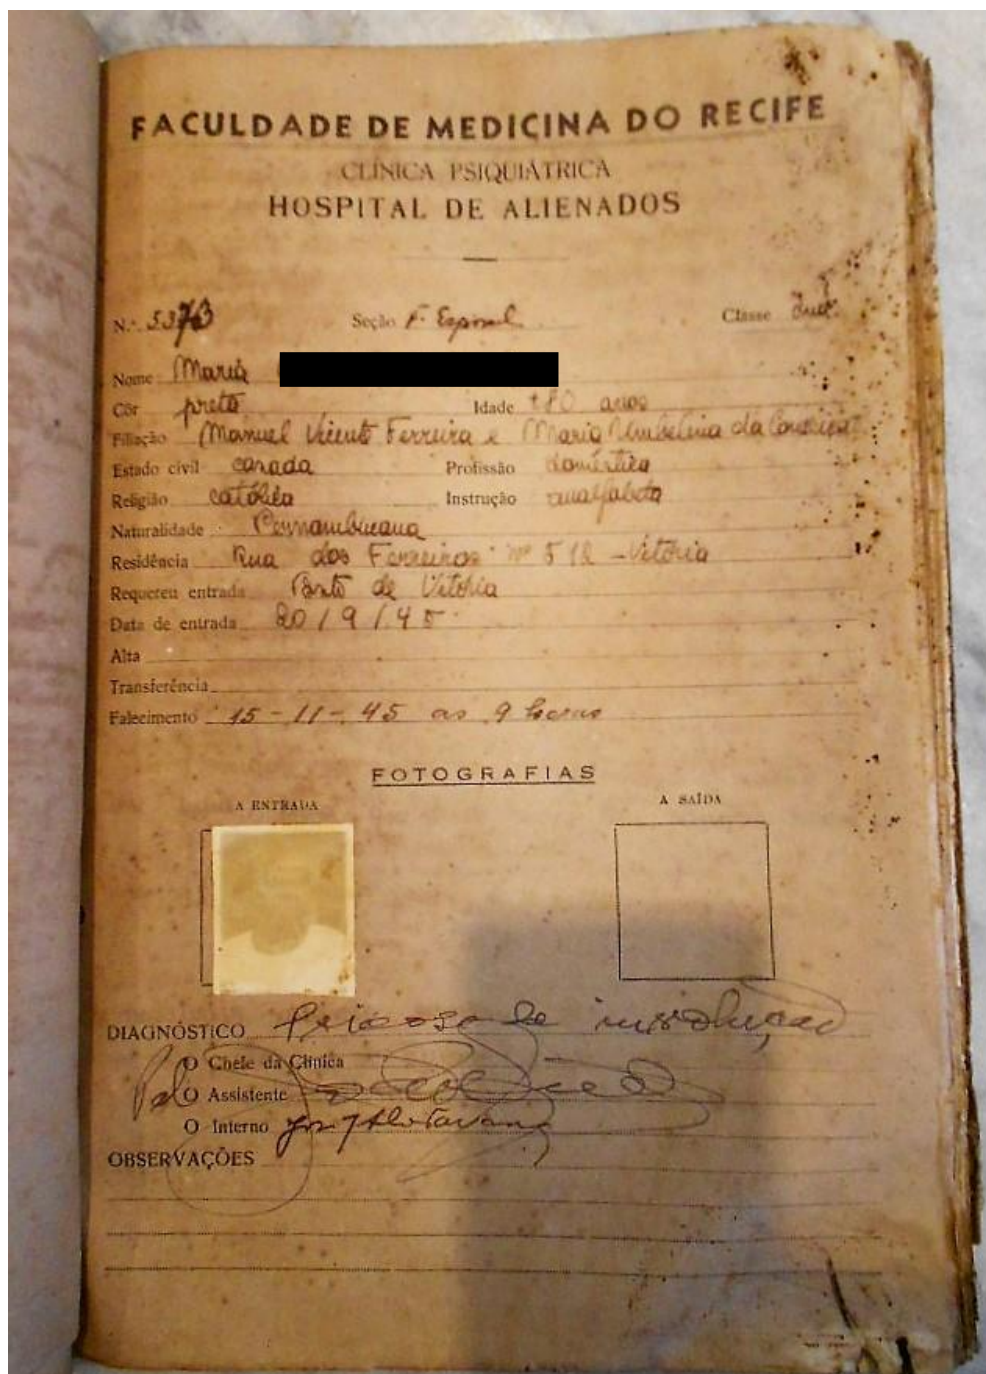 FACULDADE DE MEDICINA DO RECIFE
CLÍNICA PSIQUIÁTRICA
HOSPITAL DE ALIENADOS
N.º 5373 Seção F. Classe
Nome Maria
Côr preta Idade ±80 anos
Filiação Manuel Vicente Ferreira e Maria Umbelina da Conceição
Estado civil casada Profissão doméstica
Religião católica Instrução analfabeta
Naturalidade Pernambucana
Residência Rua dos Ferreiros nº 512 - Vitória
Requereu entrada de Vitória
Data de entrada 20/9/45
Alta
Transferência
Falecimento 15-11-45 as 9 horas
FOTOGRAFIAS
A ENTRADA A SAÍDA
DIAGNÓSTICO Psicose de involução
O Chefe da Clínica
O Assistente
O Interno
OBSERVAÇÕES